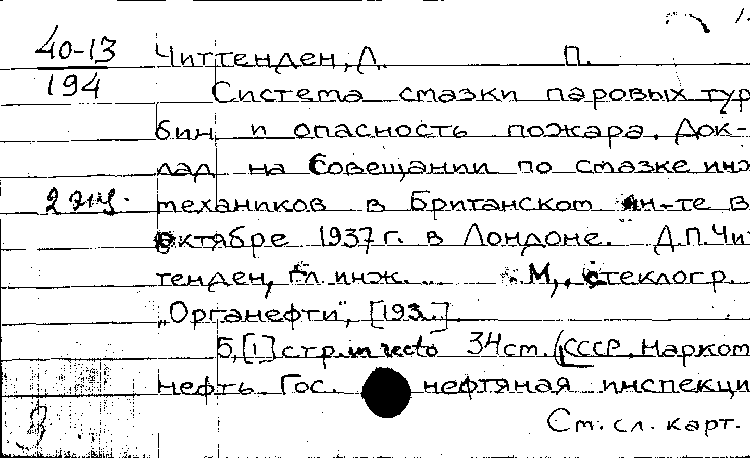 40-13
194
Читтенден, Д. П.
Система смазки паровых тур
бин и опасность пожара. Док-
лад на Совещании по смазке инж
2 экз. механиков в Британском ин-те в
октябре 1937 г. в Лондоне. Д.П. Чит
тенден, гл. инж. ... М., стеклогр.
„Органефти", [193..].
5,[1] стр. in recto 34 см. (СССР. Нарком
нефть Гос. нефтяная инспекци
См. сл. карт.